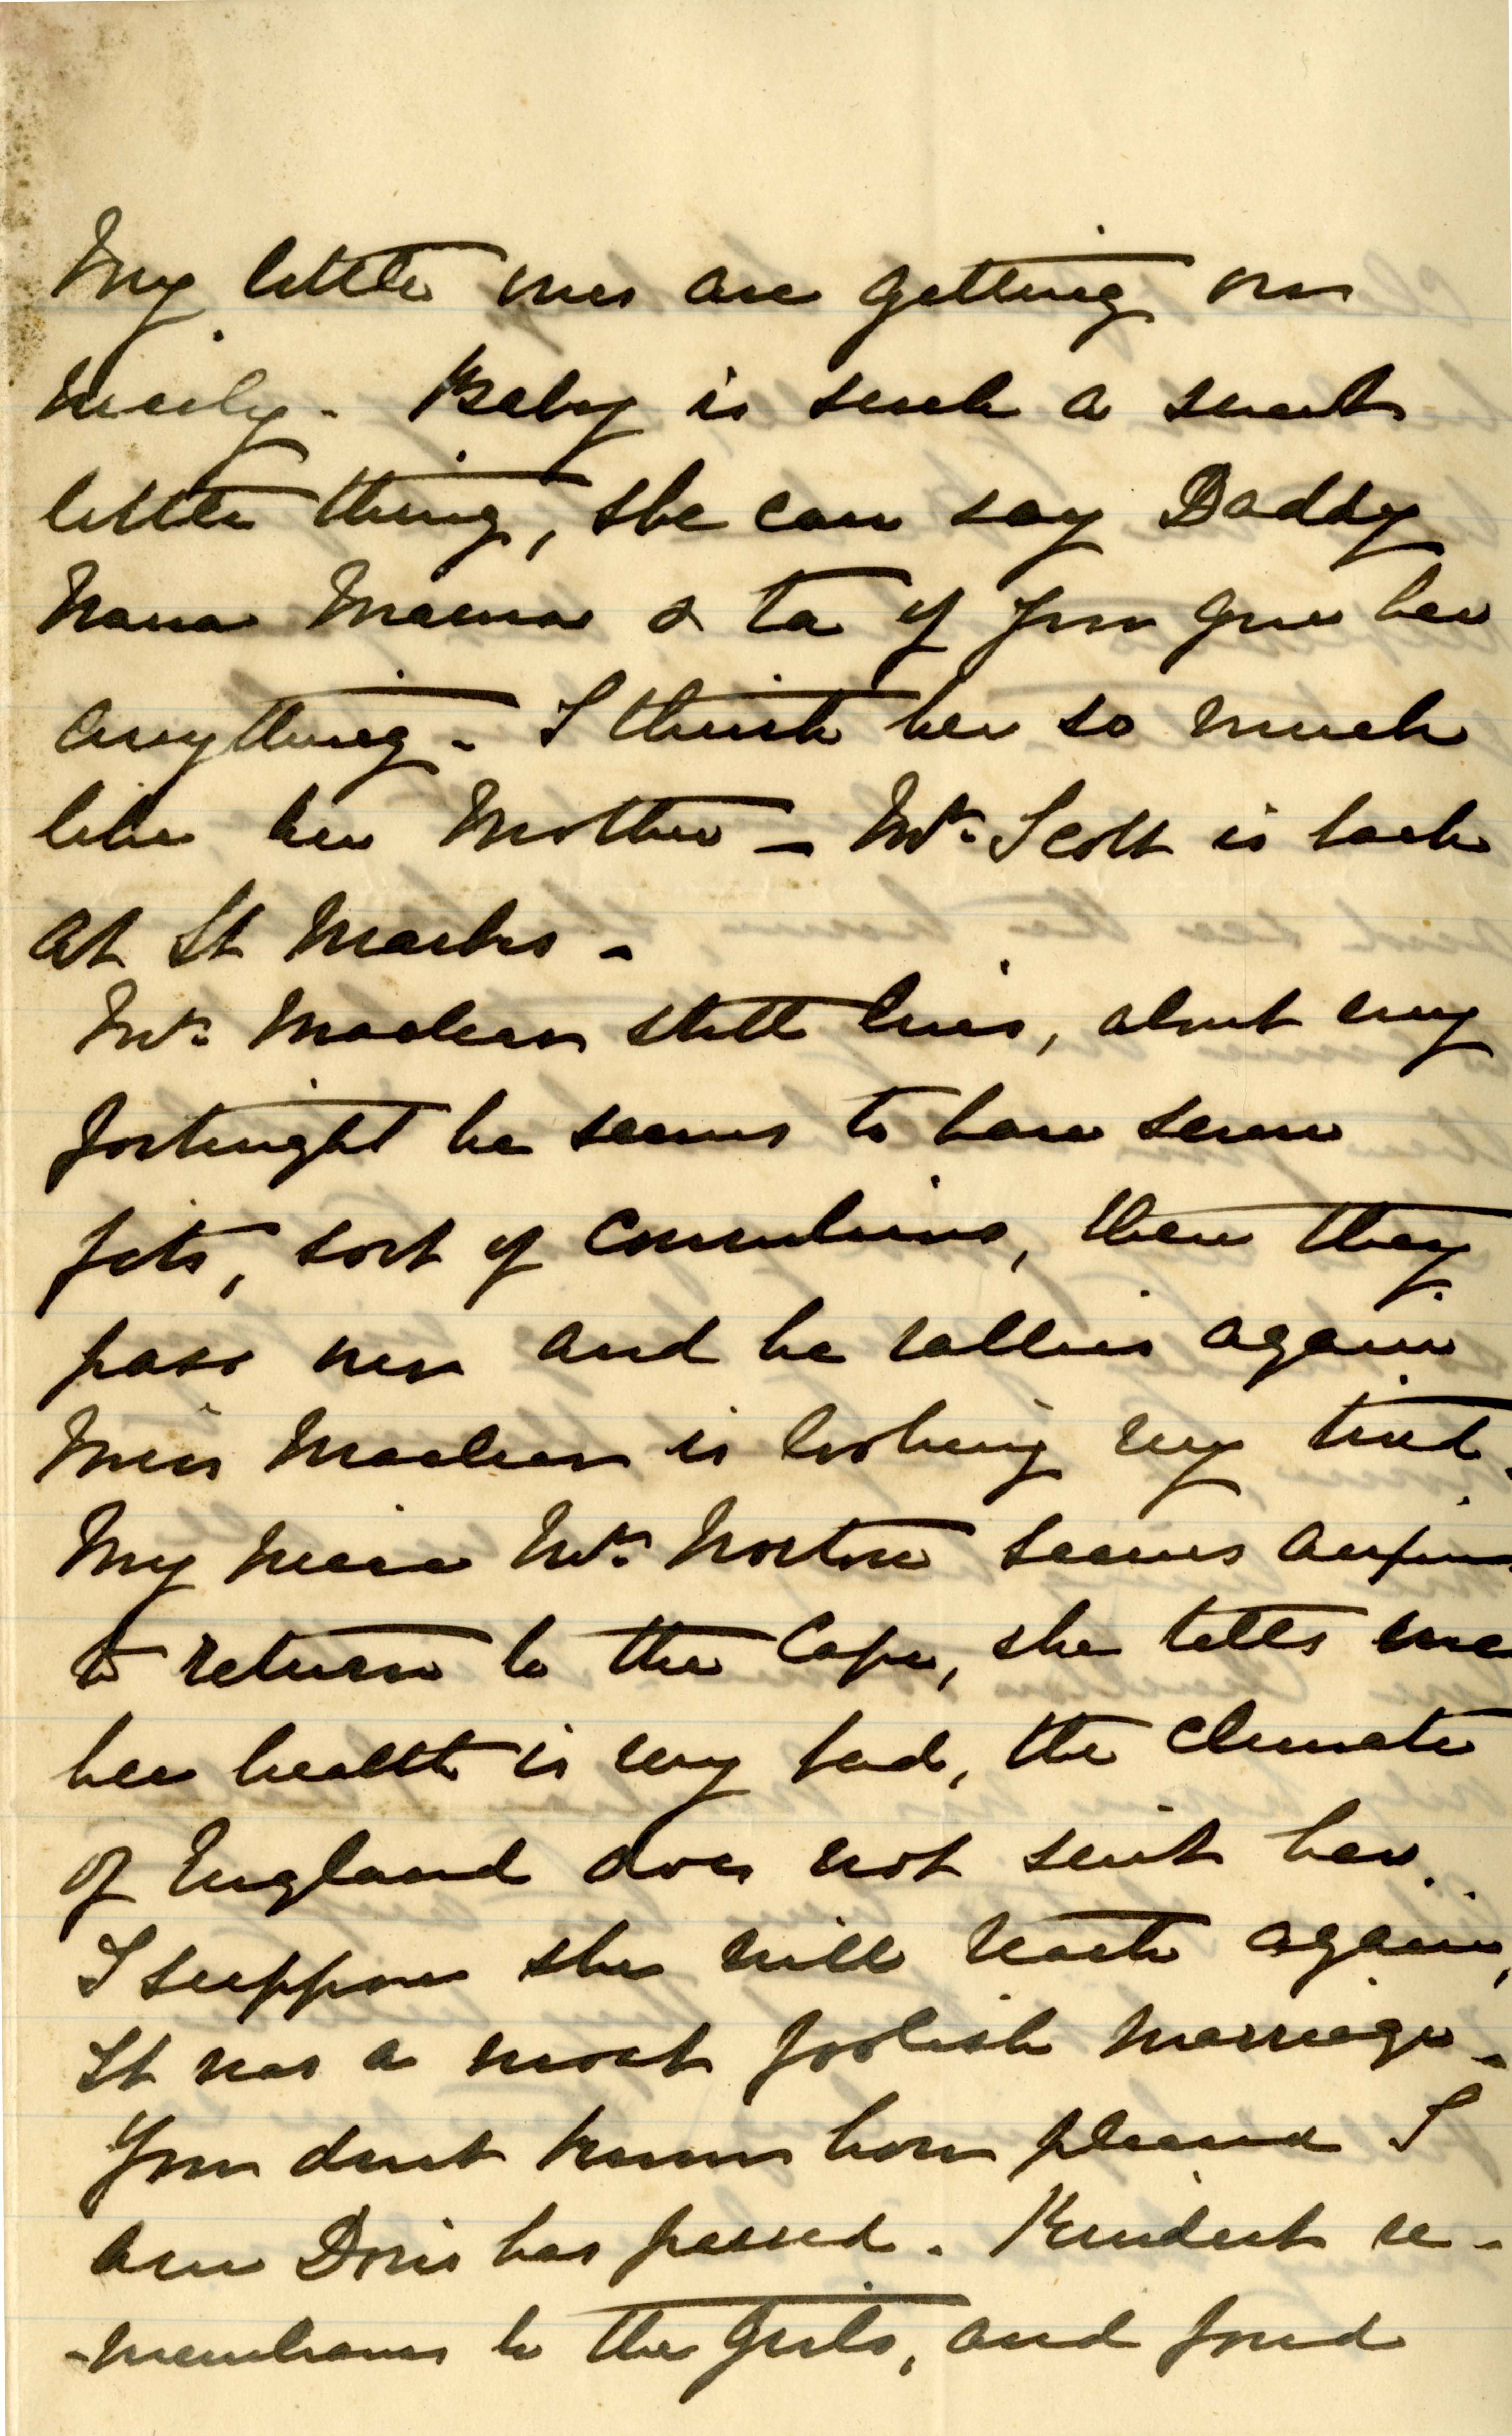 My little ones are getting on
nicely - Baby is such a sweet
little thing, she can say Daddy
Nana Mama & ta if you give her
anything - I think her so much
like her Mother - Mr. Scott is back
at St Marks -
Mr. Maclean still lives, about every
fortnight he seems to have severe
fits, sort of convulsions, then they
pass over and he rallies again
Miss Maclean is looking very tired.
My niece Mrs Norton seems anxious
to return to the Cape, she tells me
her health is very bad, the climate
of England does not suit her.
I suppose she will teach again,
It was a most foolish marriage -
You dont know how pleased I
am Doris has passed. Kindest re-
-membrances to the Girls, and fond